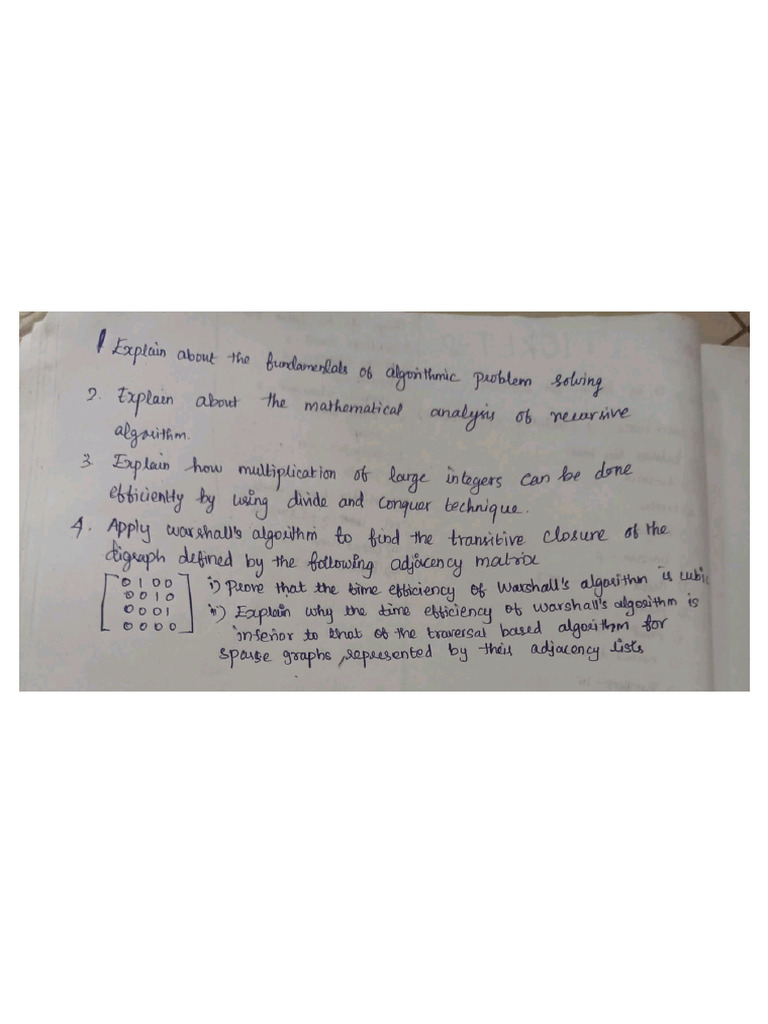 1 Explain about the fundamentals of algorithmic problem solving
2. Explain about the mathematical analysis of recursive
algorithm.
3. Explain how multiplication of large integers can be done
efficiently by using divide and conquer technique.
4. Apply warshall's algorithm to find the transitive closure of the
digraph defined by the following adjacency matrix
0 1 0 0 i) Prove that the time efficiency of Warshall's algorithm is cubic
0 0 1 0
0 0 0 1 ii) Explain why the time efficiency of warshall's algosithm is
0 0 0 0 inferior to that of the traversal based algorithm for
sparse graphs, represented by their adjacency lists